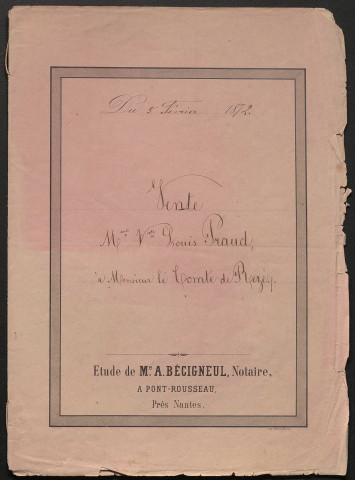 Du 5 Février 1872
Vente
Mme Vve Louis Praud,
à Monsieur le Comte de Rezé.
Etude de Me A. BÉCIGNEUL, Notaire,
A PONT-ROUSSEAU,
Près Nantes.